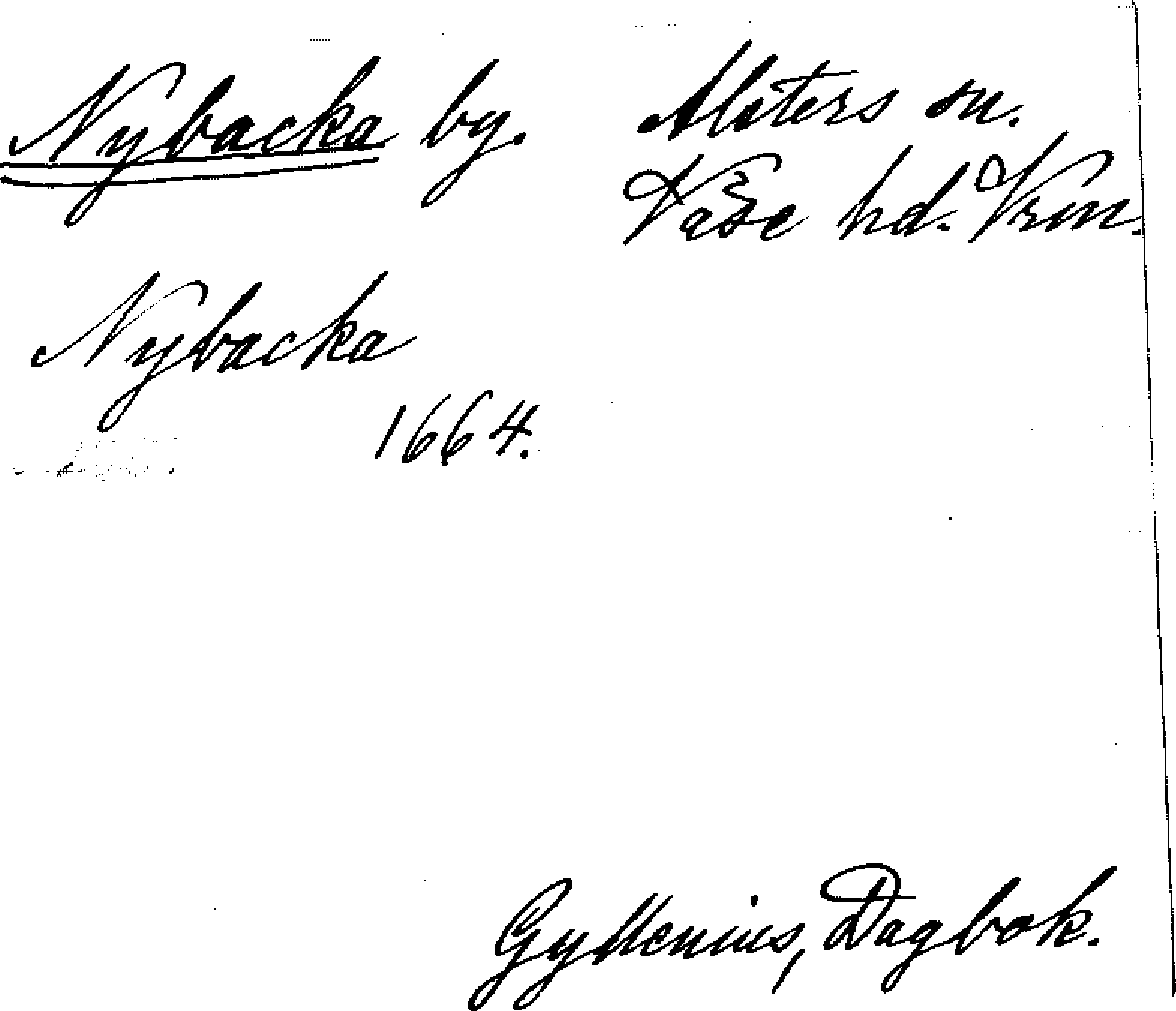 Nybacka by. Alsters sn.
Väse hd. Vrml.
Nybacka
1664.
Gyllenius, Dagbok.